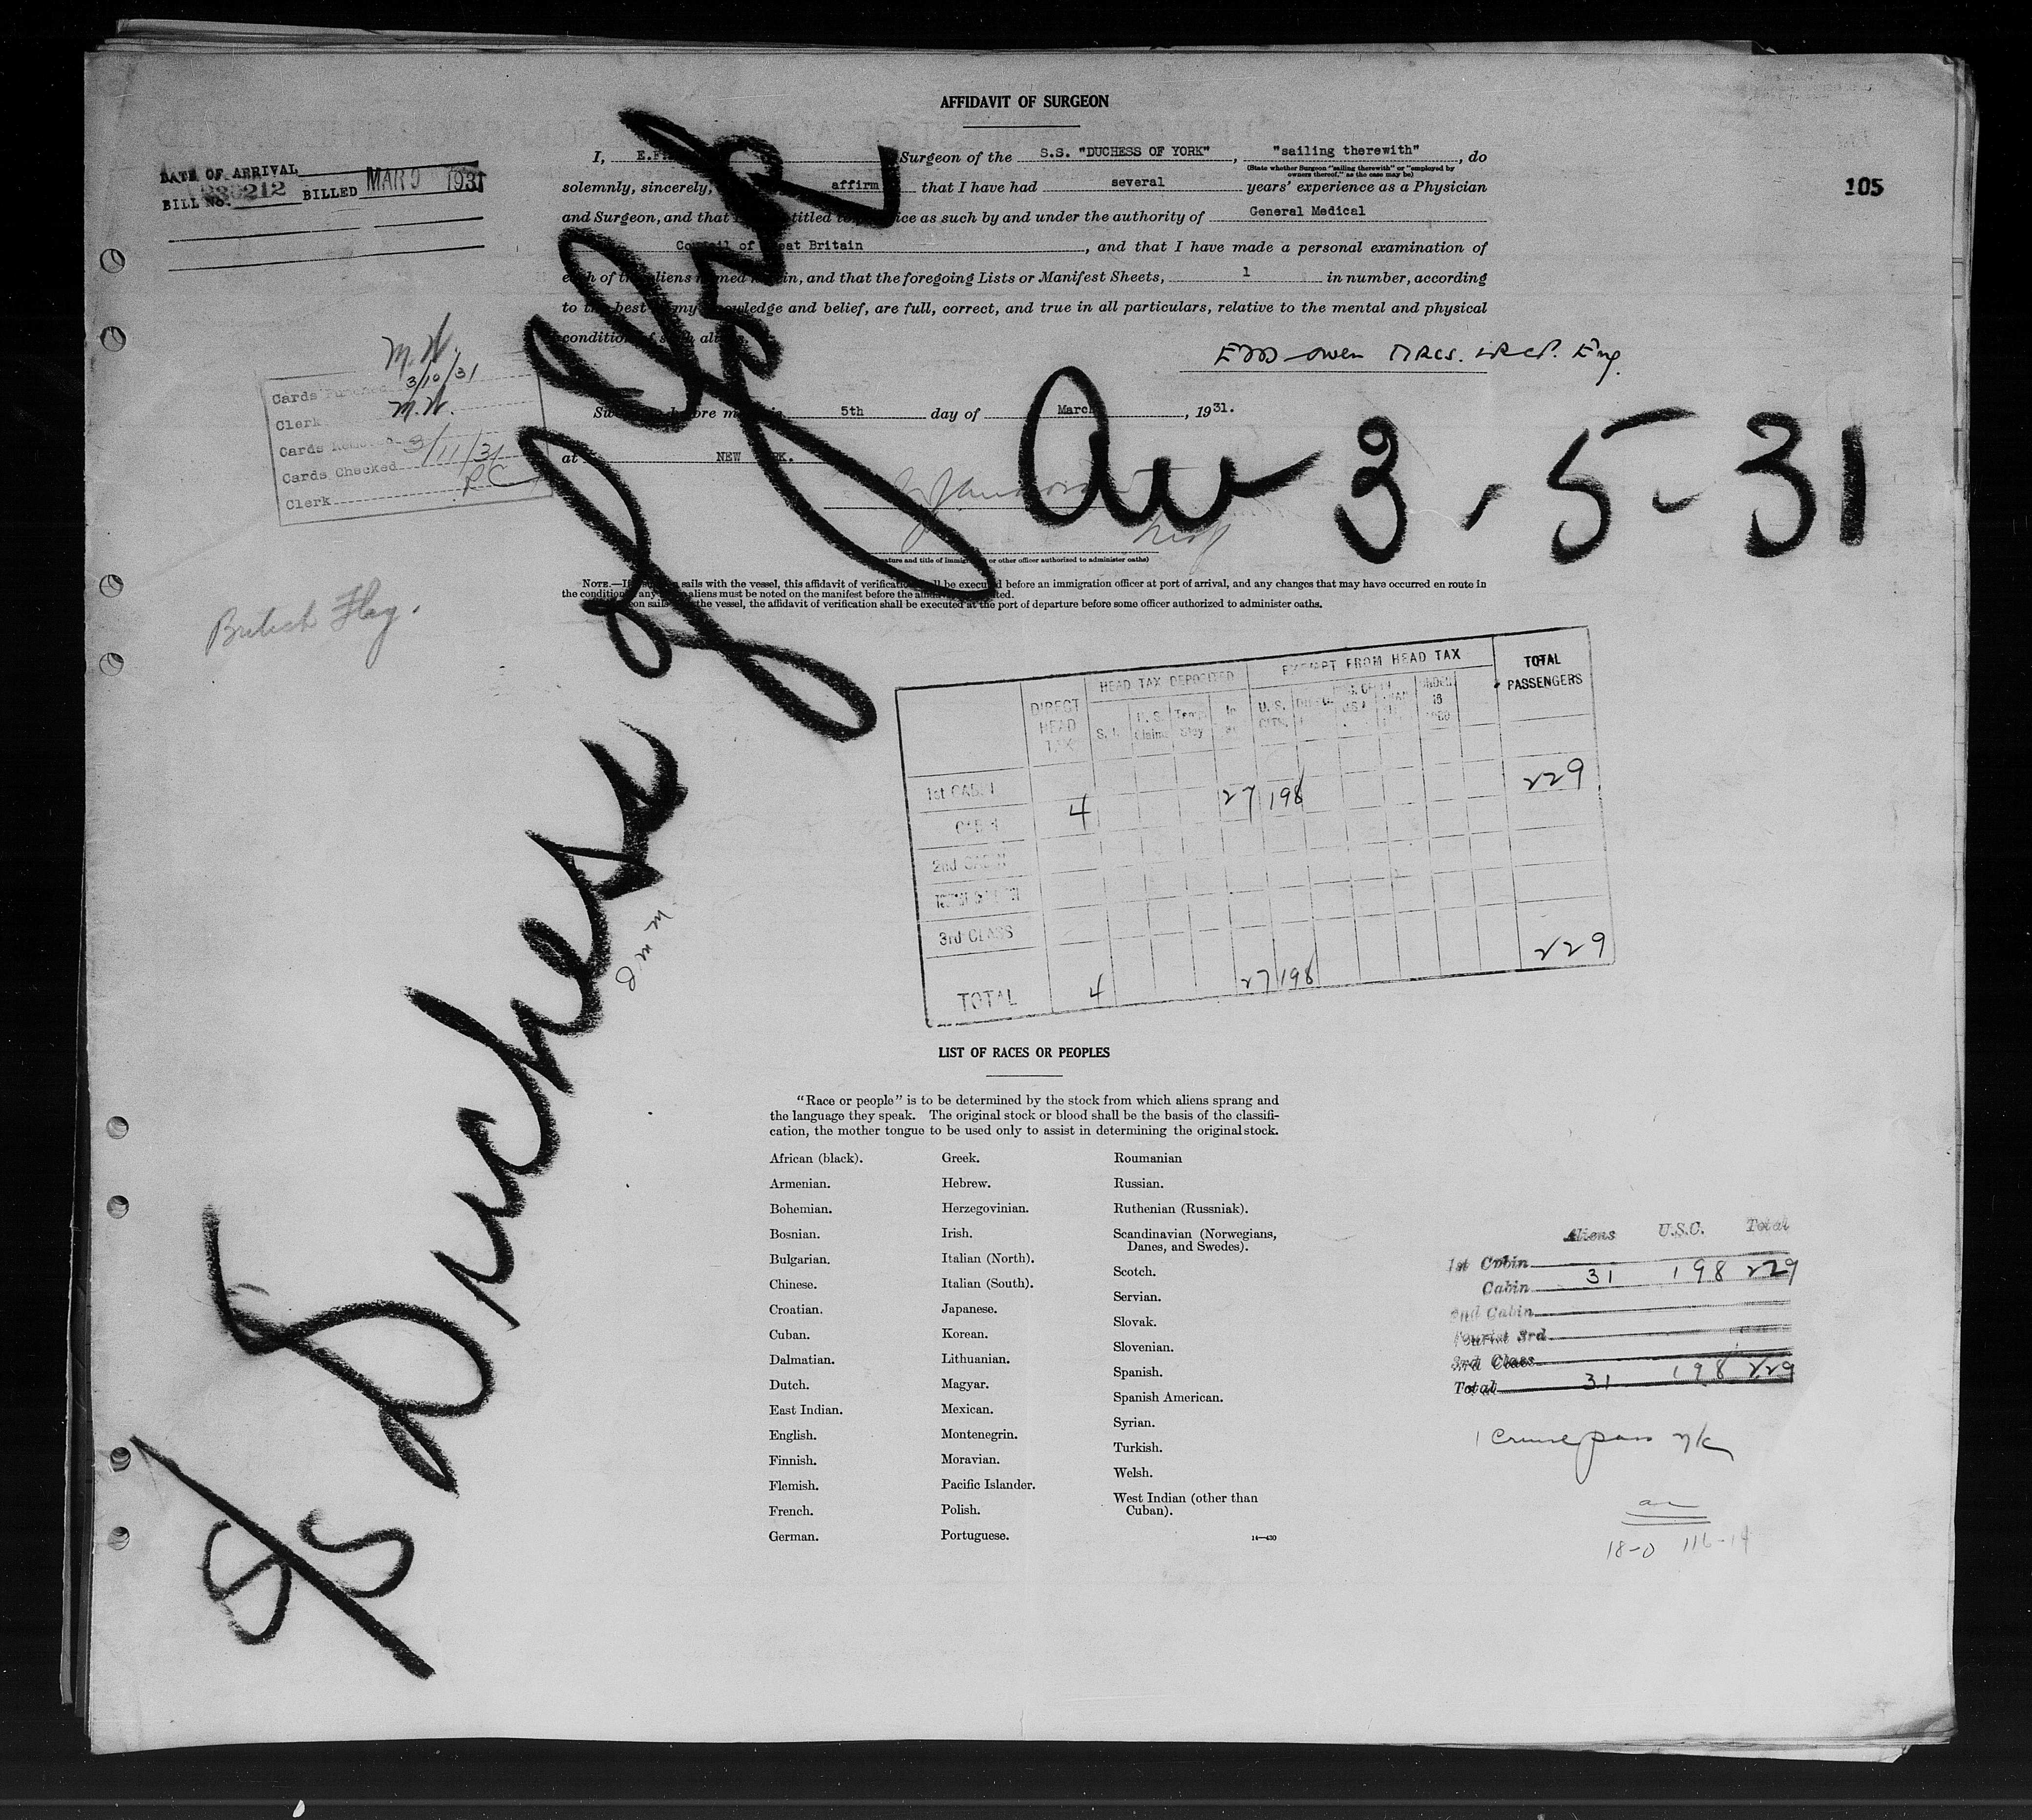 AFFIDAVIT OF SURGEON
105
DATE OF ARRIVAL
BILL No. 212 BILLED MAR 9 1931
I, Surgeon of the S.S. "DUCHESS OF YORK", "sailing therewith", do
(State whether Surgeon "sailing therewith" or "employed by
owners thereof," as the case may be)
solemnly, sincerely, affirm that I have had several years' experience as a Physician
and Surgeon, and that titled ice as such by and under the authority of General Medical
Council of Great Britain, and that I have made a personal examination of
each of the aliens named herein, and that the foregoing Lists or Manifest Sheets, 1 in number, according
to the best my knowledge and belief, are full, correct, and true in all particulars, relative to the mental and physical
condition of such aliens.
Owen MRCS. LRCP. Eng.
before me 5th day of March, 1931.
at NEW YORK.
(Signature and title of immigration or other officer authorized to administer oaths)
S/S Duchess of York
Arr 3-5-31
M.W.
Cards Punched 3/10/31
Clerk M.W.
Cards Removed 3/11/31
Cards Checked
Clerk RC
British Flag.
NOTE.—If sails with the vessel, this affidavit of verification shall be executed before an immigration officer at port of arrival, and any changes that may have occurred en route in
the condition any aliens must be noted on the manifest before the
sails the vessel, the affidavit of verification shall be executed at the port of departure before some officer authorized to administer oaths.
DIRECT HEAD TAX
HEAD TAX DEPOSITED
EXEMPT FROM HEAD TAX
TOTAL PASSENGERS
S. I. U. S. Claims Temp Stay In U. S. CITS. U.S.A. UNDER 16
1st CABIN
CABIN 4 27 198 229
2nd CABIN
3rd CLASS
TOTAL 4 27 198 229
LIST OF RACES OR PEOPLES
"Race or people" is to be determined by the stock from which aliens sprang and
the language they speak. The original stock or blood shall be the basis of the classifi-
cation, the mother tongue to be used only to assist in determining the original stock.
African (black).
Armenian.
Bohemian.
Bosnian.
Bulgarian.
Chinese.
Croatian.
Cuban.
Dalmatian.
Dutch.
East Indian.
English.
Finnish.
Flemish.
French.
German.
Greek.
Hebrew.
Herzegovinian.
Irish.
Italian (North).
Italian (South).
Japanese.
Korean.
Lithuanian.
Magyar.
Mexican.
Montenegrin.
Moravian.
Pacific Islander.
Polish.
Portuguese.
Roumanian
Russian.
Ruthenian (Russniak).
Scandinavian (Norwegians,
Danes, and Swedes).
Scotch.
Servian.
Slovak.
Slovenian.
Spanish.
Spanish American.
Syrian.
Turkish.
Welsh.
West Indian (other than
Cuban).
14—430
Aliens U.S.C. Total
1st Cabin
Cabin 31 198 229
2nd Cabin
Tourist 3rd
3rd Class
Total 31 198 229
1 Cruise pass
18-0 116-14